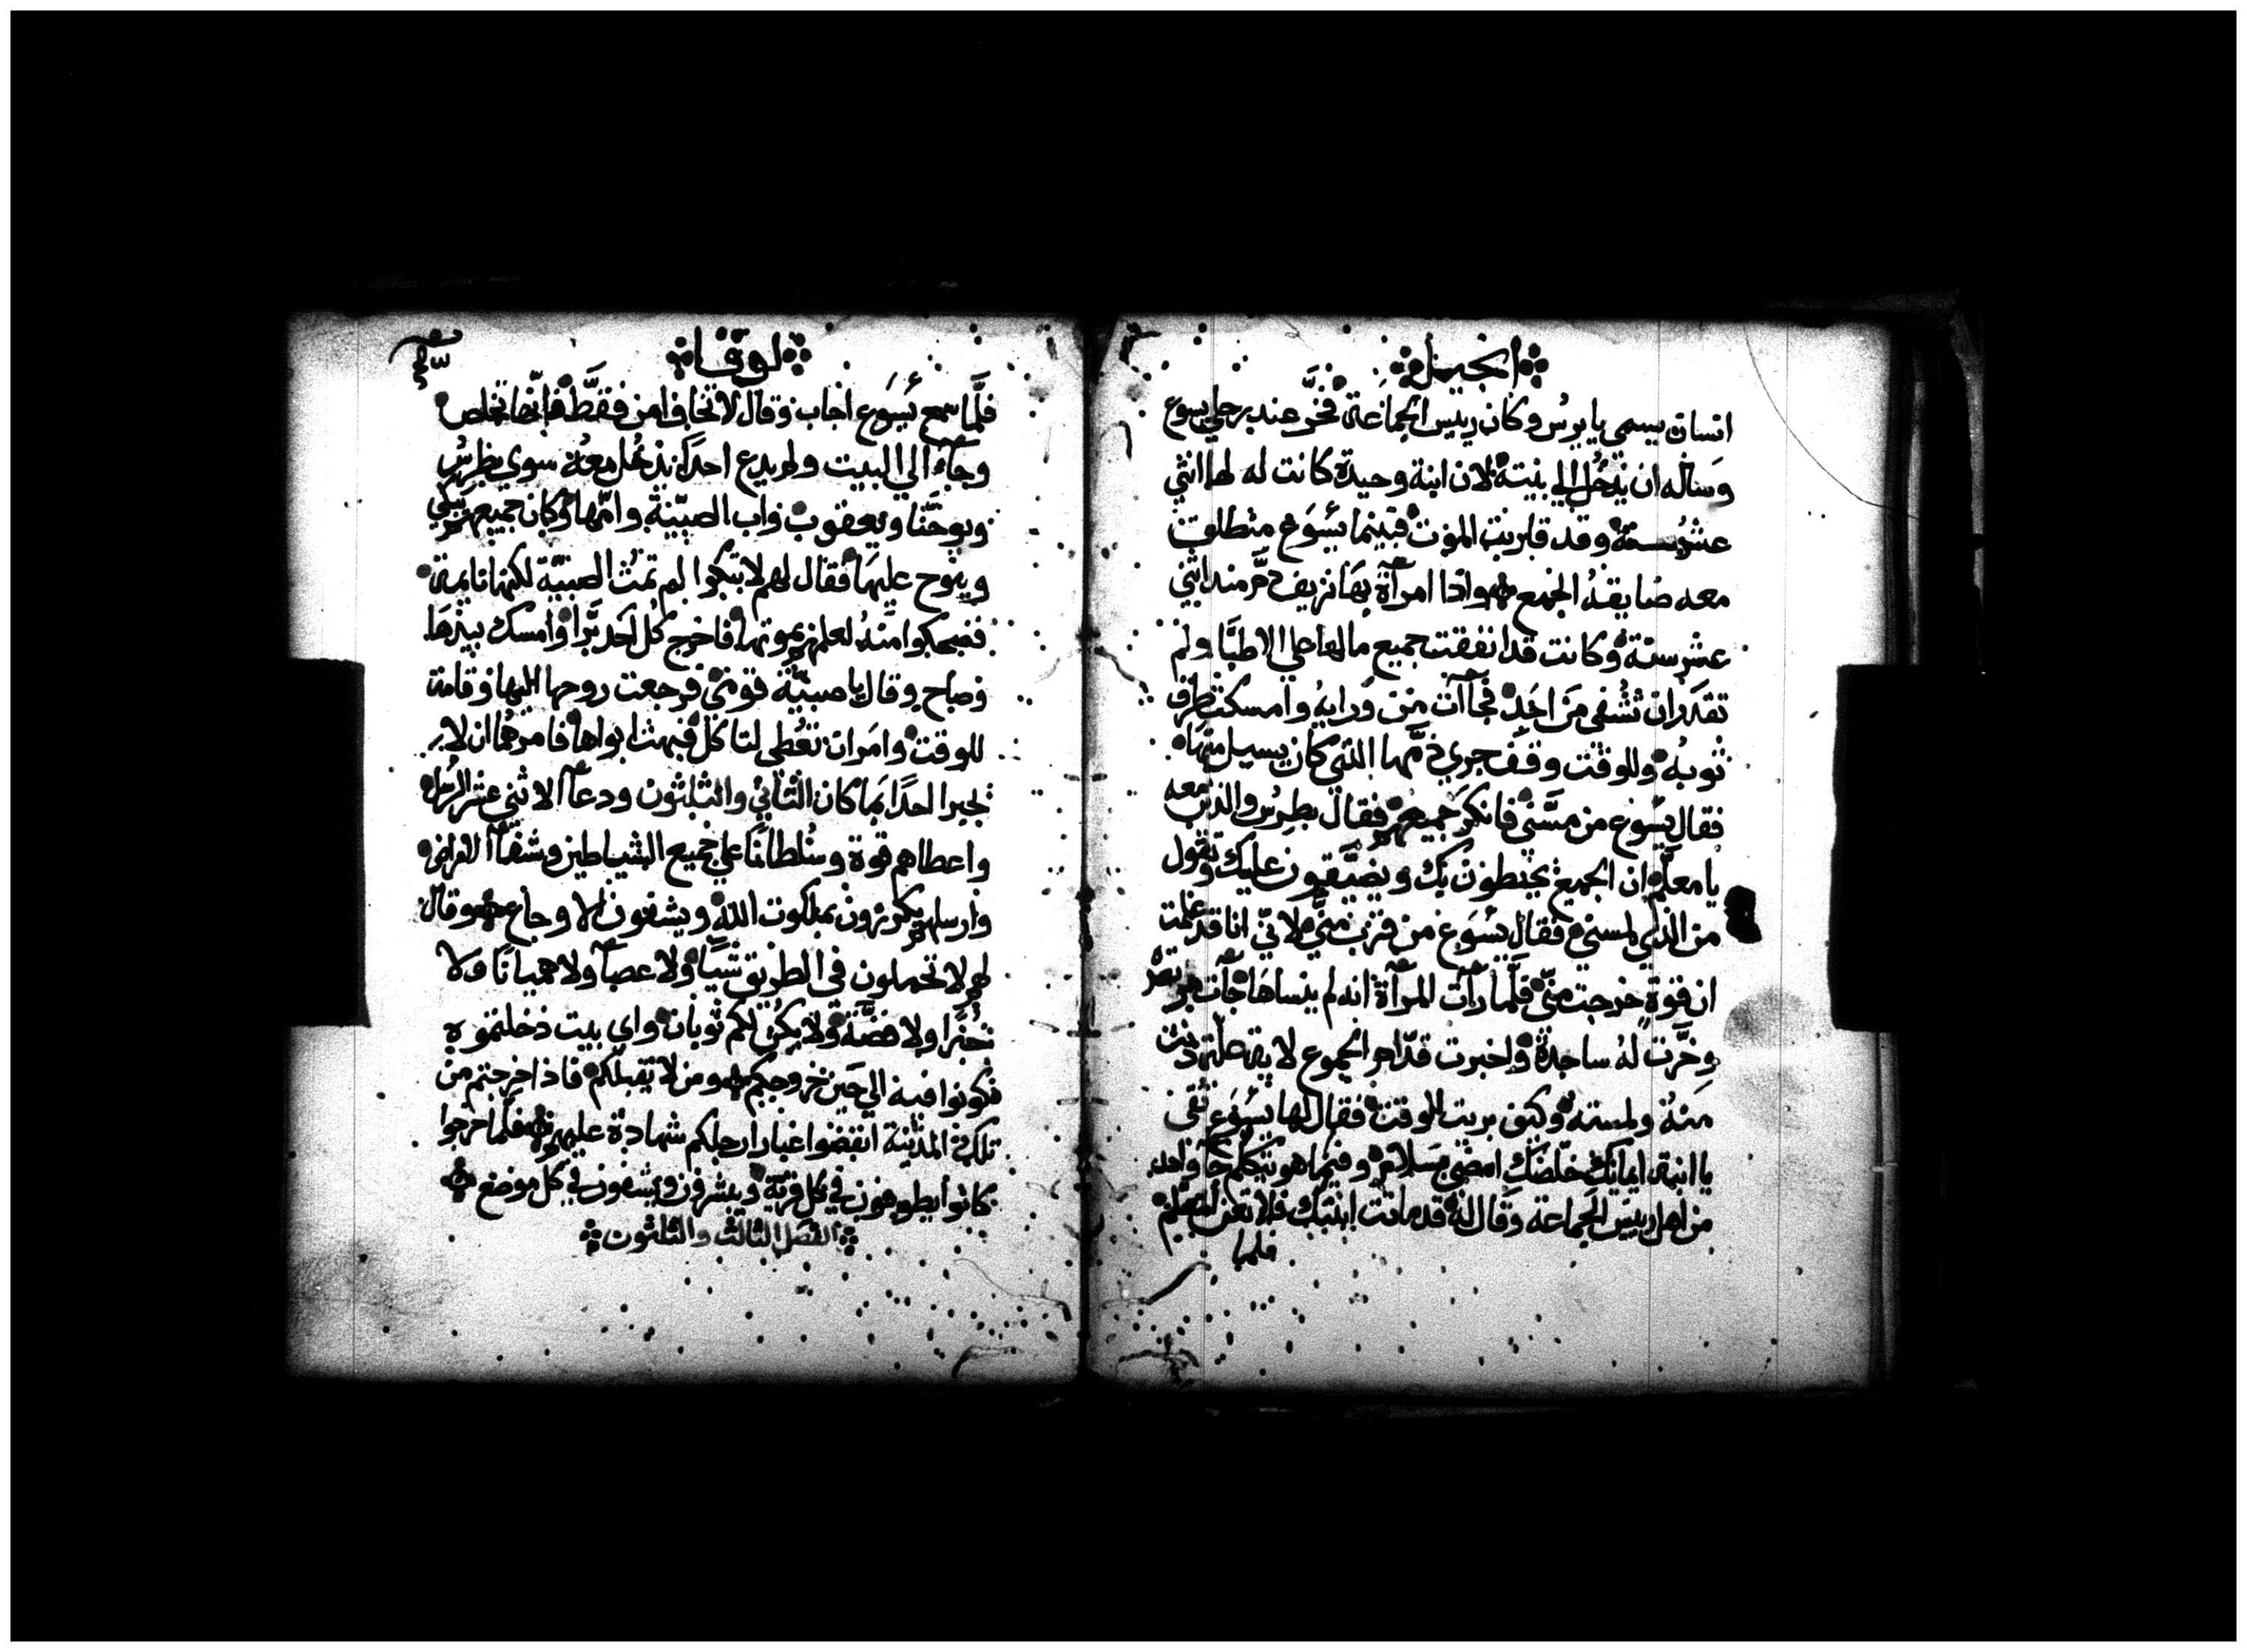 انجيل
انسان يسمي يايرس وكان رييس الجماعة فخر عند رجلي يسوع
وساله ان يدخل الي بيته لان ابنة وحيدة كانت له لها اثني
عشر سنة وقد قاربت الموت فبينما يسوع منطلق
معه ضايقه الجمع واذا امرآة بها نزيف دم منذ اثني
عشر سنة وكانت قد انفقت جميع مالها علي الاطبا ولم
تقدر ان تشفي من احد فجاآت من ورايه وامسكت طرف
ثوبه وللوقت وقف جري دمها الذي كان يسيل منها
فقال يسوع من مسني فانكر جميعهم فقال بطرس والذين معه
يا معلم ان الجميع يحيطون بك ويضيقون عليك وتقول
من الذي لمسني فقال يسوع من قرب مني لاني انا قد علمت
ان قوة خرجت مني فلما رات المرآة انه لم ينساها جآت مرتعدة
وخرت له ساجدة واخبرت قدام الجموع لاية علة دنت
منه ولمسته وكيف بريت للوقت فقال لها يسوع ثقي
يا ابنة ايمانك خلصك امضي بسلام وفيما هو يتكلم جا واحد
من اهل رييس الجماعة وقال له قد ماتت ابنتك فلا تعن المعلم
فلما
لوقا
فلما سمع يسوع اجاب وقال لا تخاف امن فقط فانها تخلص
وجآء الي البيت ولم يدع احدا يدخل معه سوي بطرس
ويوحنا ويعقوب واب الصبية وامها وكان جميعهم يبكي
وينوح عليها فقال لهم لا تبكوا لم تمت الصبية لكنها نايمة
فضحكوا منه لعلمهم بموتها فاخرج كل احد برا وامسك بيدها
وصاح وقال يا صبية قومي فرجعت روحها اليها وقامت
للوقت وامر ان تعطي لتاكل فبهت ابواها فامرهما ان لا
يخبرا احدا بما كان الثاني والثلثون ودعآ الاثني عشر الرسل
واعطاهم قوة وسلطانا علي جميع الشياطين وشفآ الامراض
وارسلهم يكرزون بملكوت الله ويشفون الاوجاع وقال
لهم لا تحملون في الطريق شيا ولا عصآ ولا هميانا ولا
خبزا ولا فضة ولا يكن لكم ثوبان واي بيت دخلتموه
فكونوا فيه الي حين خروجكم ومن لا يقبلكم فاذا خرجتم من
تلك المدينة انفضوا غبار ارجلكم شهادة عليهم فلما خرجوا
كانوا يطوفون في كل قرية ويبشرون ويشفون في كل موضع
الفصل الثالث والثلثون